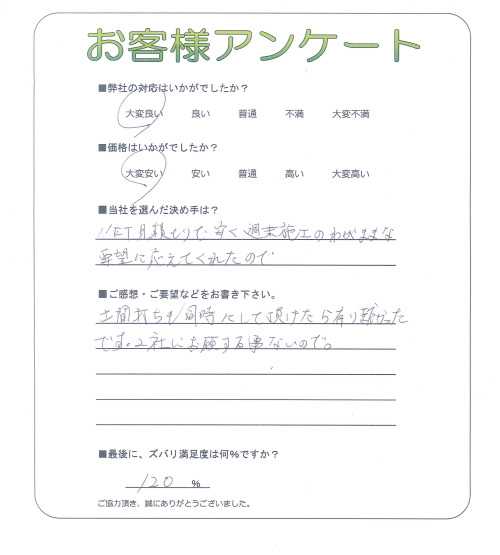 お客様アンケート
■弊社の対応はいかがでしたか？
大変良い 良い 普通 不満 大変不満
■価格はいかがでしたか？
大変安い 安い 普通 高い 大変高い
■当社を選んだ決め手は？
見積もりで 安く 週末施工のわがままな
要望に応えてくれたので
■ご感想・ご要望などをお書き下さい。
土間打ちも同時にして頂けたら有り難かった
です。2社にお願する事ないので。
■最後に、ズバリ満足度は何%ですか？
120 %
ご協力頂き、誠にありがとうございました。